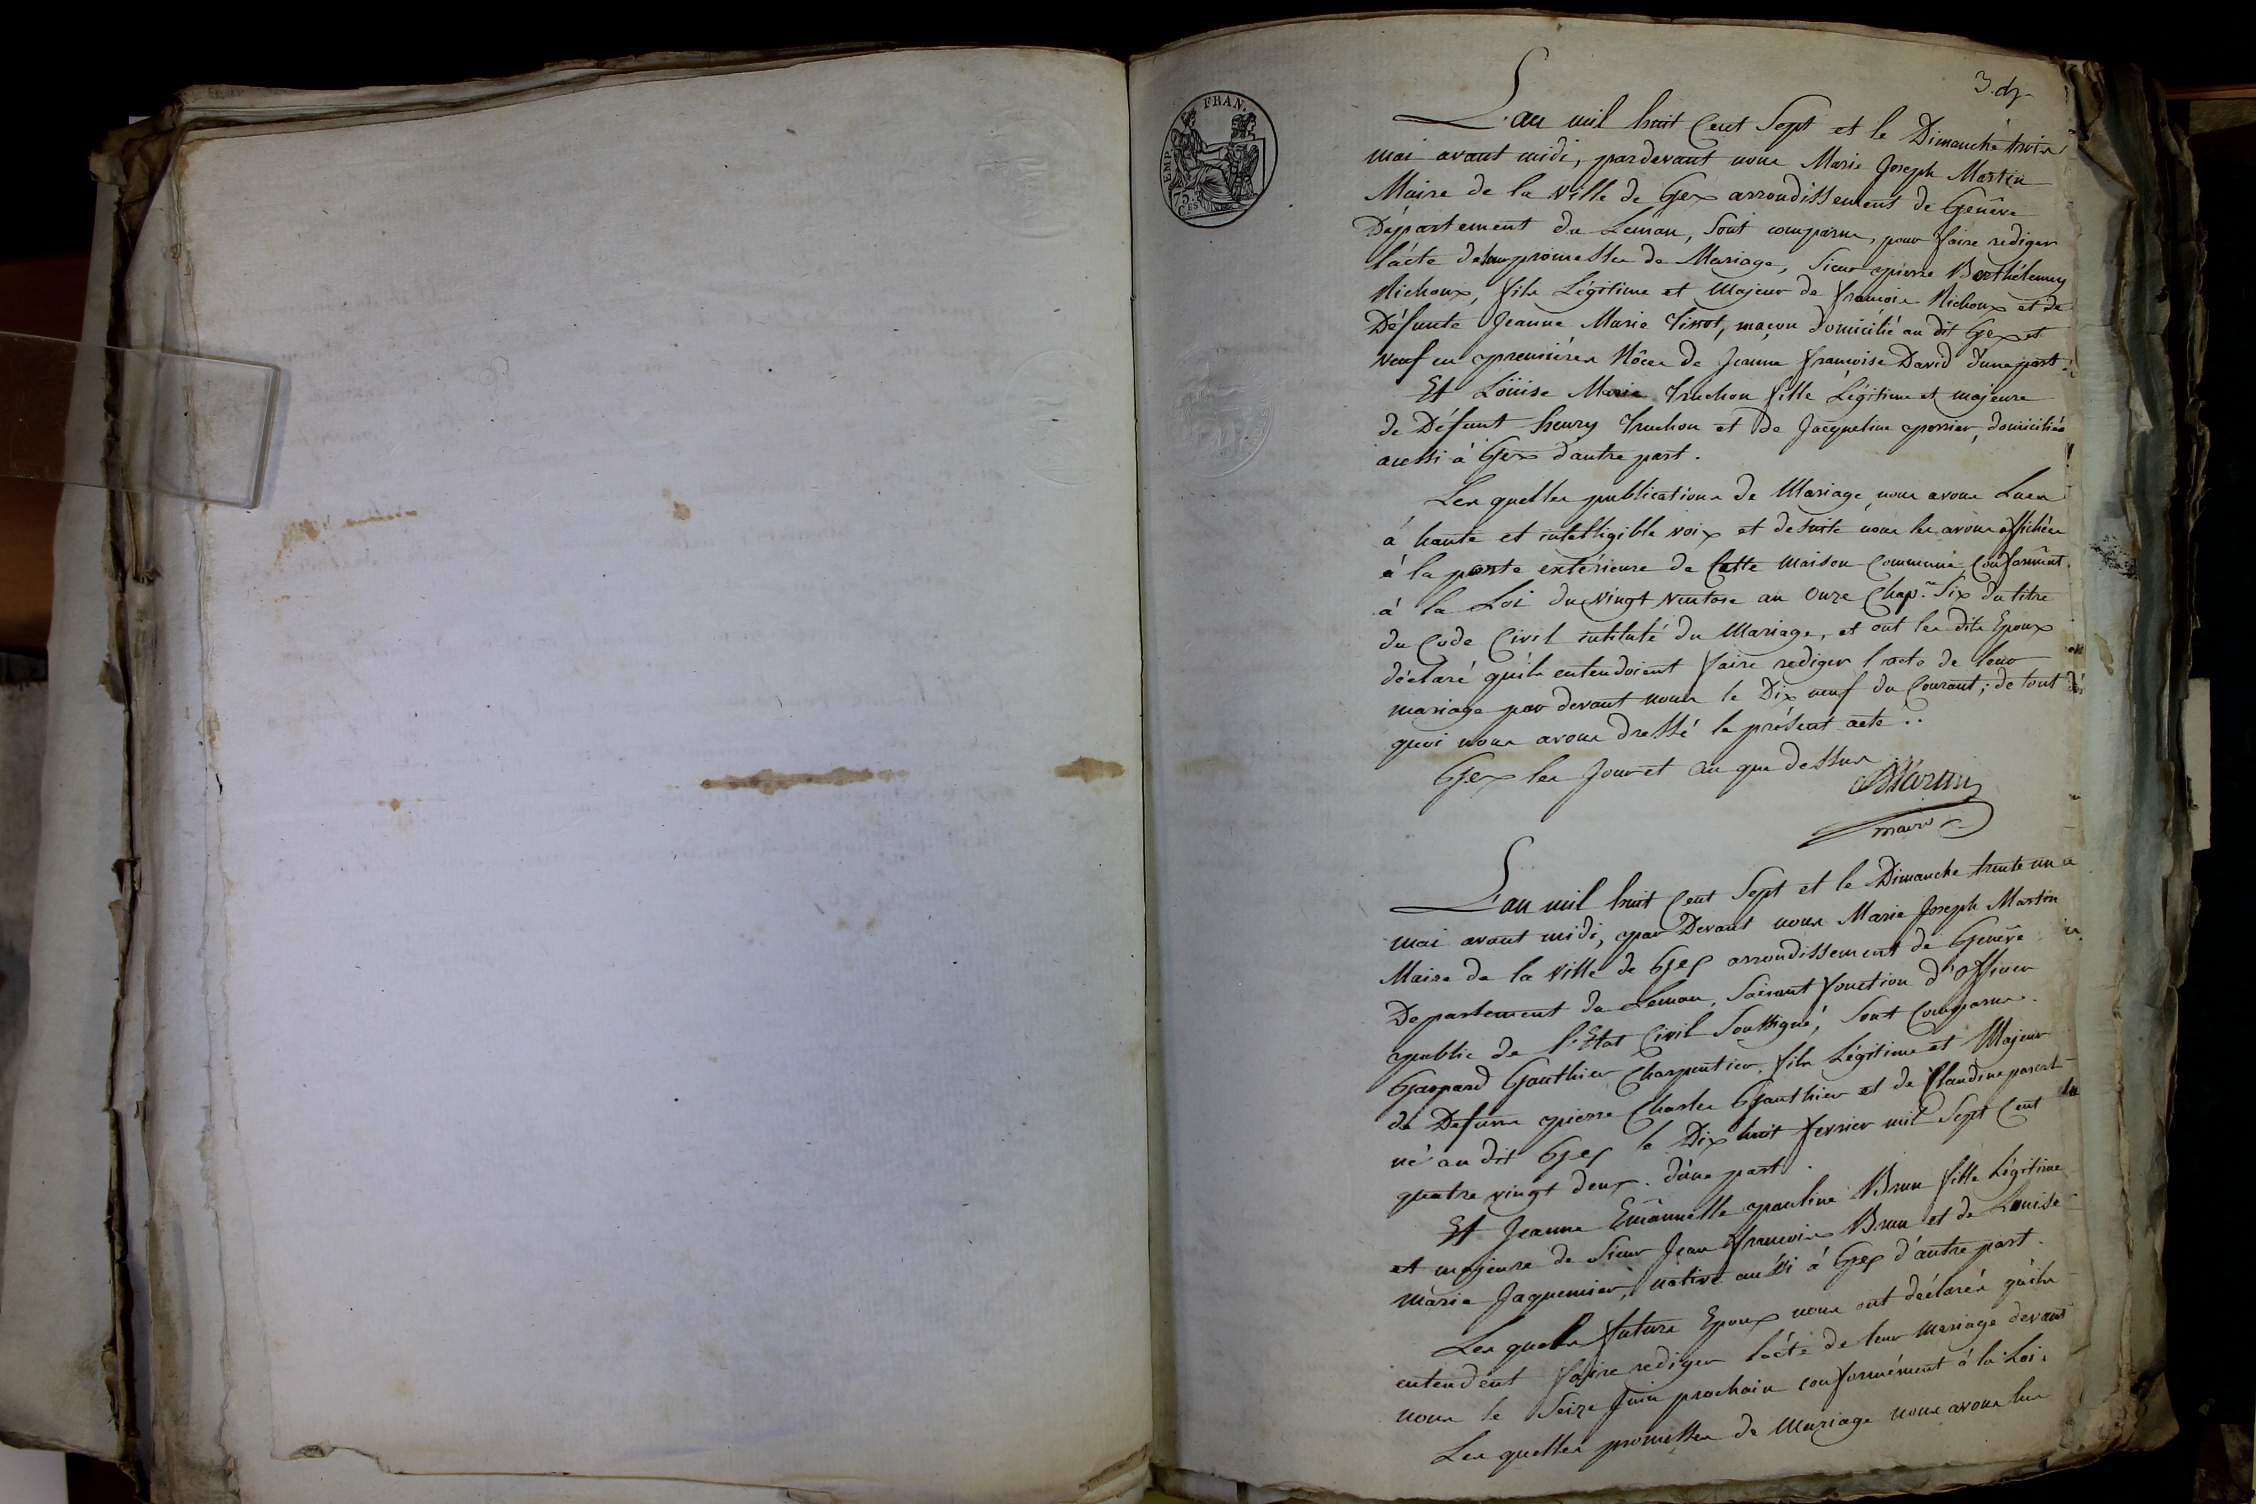 EMP. FRAN.
75.
CES
3. dp
L'an mil huit Cent Sept et le Dimanche trois
mai avant midi, pardevant nous Marie Joseph Martin
Maire de la Ville de Gex arrondissement de Genêve
Département du Leman, Sont comparus, pour faire rediger
l'acte de leur promesses de Mariage, Sieur pierre Barthélemy
Nichoux, fils Légitime et Majeur de francois Nichoux et de
Défunte Jeanne Marie Tissot, maçon domicilié au dit Gex et
veuf en premières Nôces de Jeanne françoise David d'une part.
Et Loüise Marie Truchon fille Légitime et majeure
de Défunt henry Truchon et de Jacqueline perrier, domiciliée
aussi à Gex d'autre part.
Les quelles publications de Mariage, nous avons Lues
à haute et intelligible voix et de suite nous les avons affichées
à la porte extérieure de Cette Maison Commune Conformênt.
à la Loi du vingt ventose an Onze Chap.re Six du titre
du Code Civil intitulé du Mariage, et ont les dits Epoux
déclaré qu'ils entendoient faire rediger l'acte de leur
mariage par devant nous le Dix neuf du Courant; de tout
quoi nous avons dressé le présent acte ..
Gex les Jour et an que dessus
Martin
maire
L'an mil huit Cent Sept et le Dimanche trente un
mai avant midi, par Devant nous Marie Joseph Martin
Maire de la Ville de Gex arrondissement de Genêve
Departement du Leman, faisant fonction d'officier
public de l'Etat Civil Soussigné, Sont Comparus.
Gaspard Gauthier Charpentier, fils Légitime et Majeur
de Defunts pierre Charles Gauthier et de Claudine parcat
né au dit Gex le Dix huit fevrier mil Sept Cent
quatre vingt deux. d'une part.
Et Jeanne Emânuelle pauline Brun fille Légitime
et majeure de Sieur Jean francois Brun et de Louise
marie Jaquemier, native aussi à Gex d'autre part.
Les quels futurs Epoux nous ont déclarés qu'ils
entendent faire rediger l'acte de leur Mariage devant
nous le Seize Juin prochain conformément à la Loi.
Les quelles promesses de Mariage nous avons lues